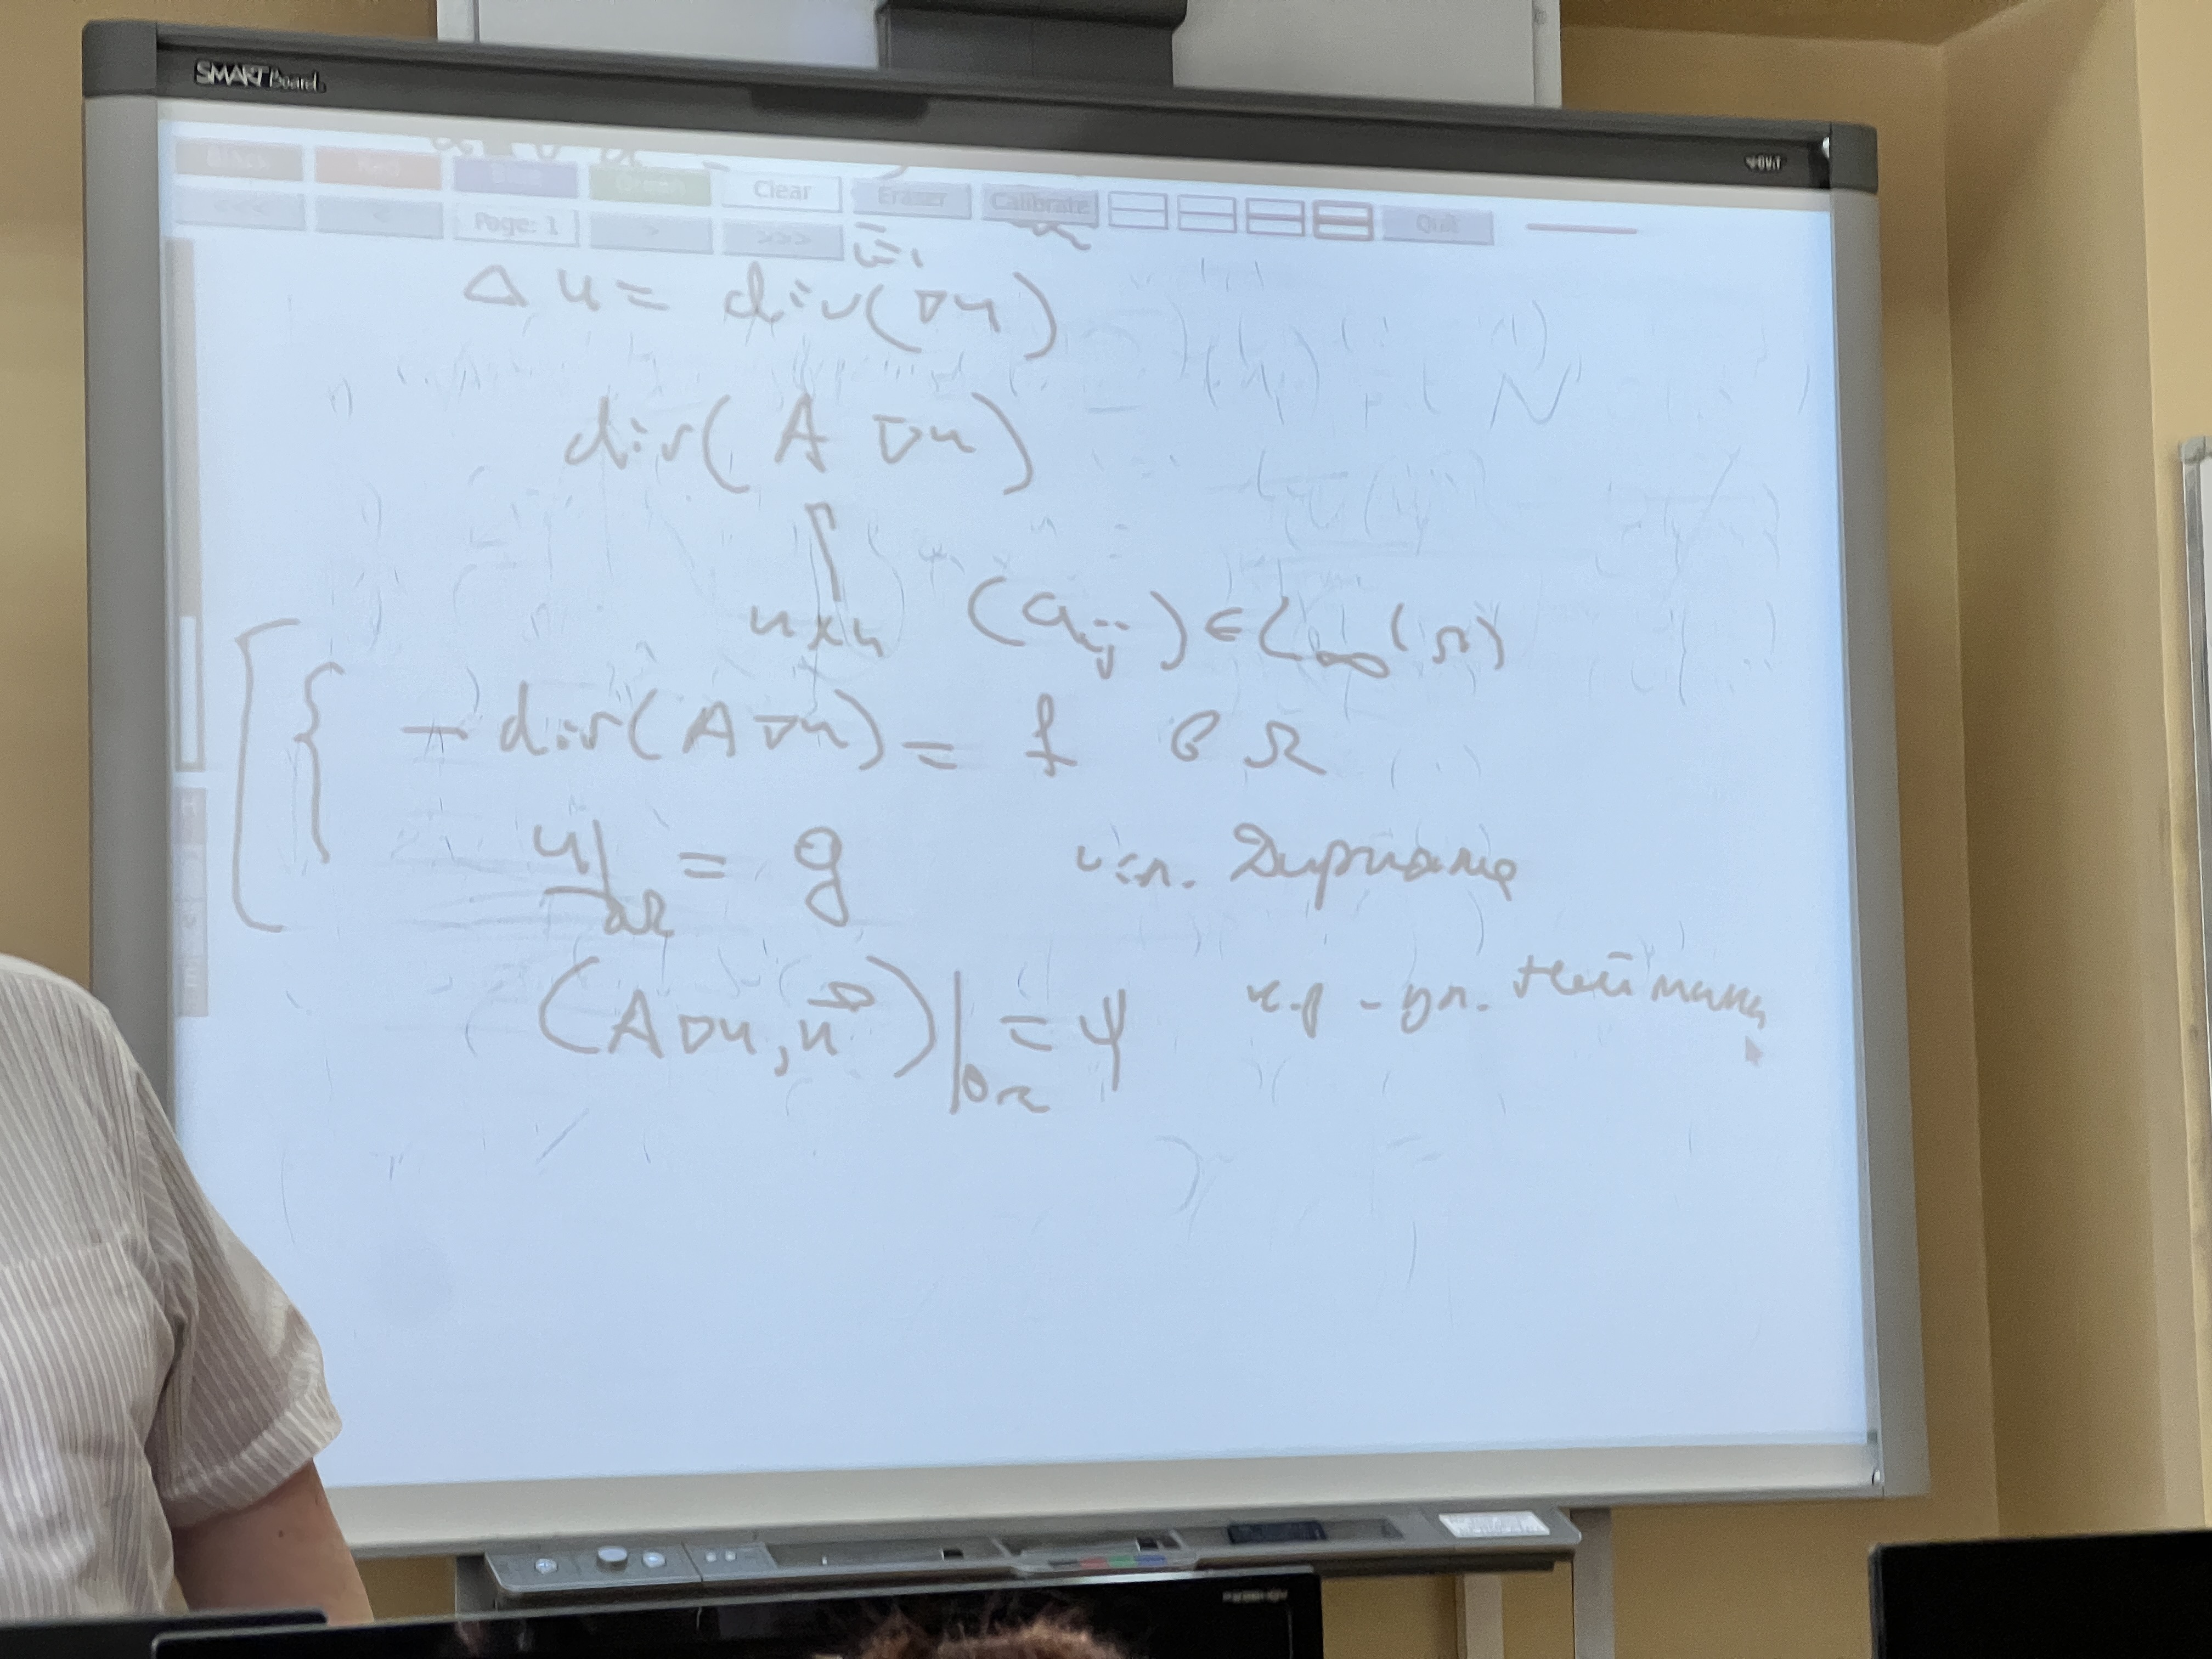 SMART Board
Black Red Blue Green Clear Eraser Calibrate Quit
<<< < Page: 1 > >>>
Δu = div(∇u)
div(A ∇u)
n×n (a_ij) ∈ L_∞(Ω)
− div(A∇u) = f в Ω
u|_∂Ω = g усл. Дирихле
(A∇u, n⃗)|_∂Ω = ψ усл. Неймана